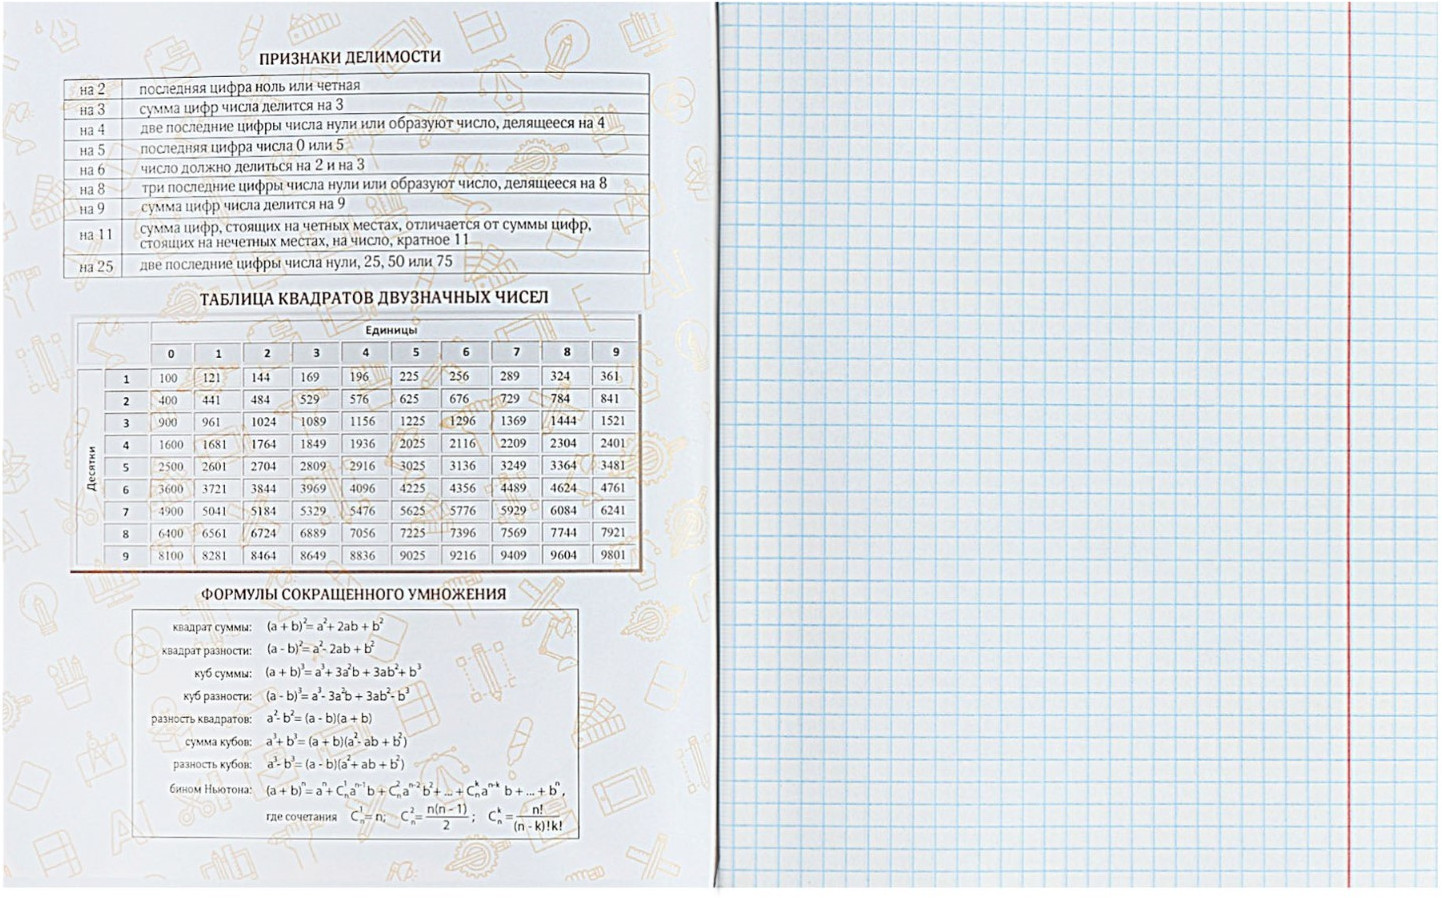 ПРИЗНАКИ ДЕЛИМОСТИ
на 2 последняя цифра ноль или четная
на 3 сумма цифр числа делится на 3
на 4 две последние цифры числа нули или образуют число, делящееся на 4
на 5 последняя цифра числа 0 или 5
на 6 число должно делиться на 2 и на 3
на 8 три последние цифры числа нули или образуют число, делящееся на 8
на 9 сумма цифр числа делится на 9
на 11 сумма цифр, стоящих на четных местах, отличается от суммы цифр,
стоящих на нечетных местах, на число, кратное 11
на 25 две последние цифры числа нули, 25, 50 или 75
ТАБЛИЦА КВАДРАТОВ ДВУЗНАЧНЫХ ЧИСЕЛ
Единицы
0 1 2 3 4 5 6 7 8 9
Десятки
1 100 121 144 169 196 225 256 289 324 361
2 400 441 484 529 576 625 676 729 784 841
3 900 961 1024 1089 1156 1225 1296 1369 1444 1521
4 1600 1681 1764 1849 1936 2025 2116 2209 2304 2401
5 2500 2601 2704 2809 2916 3025 3136 3249 3364 3481
6 3600 3721 3844 3969 4096 4225 4356 4489 4624 4761
7 4900 5041 5184 5329 5476 5625 5776 5929 6084 6241
8 6400 6561 6724 6889 7056 7225 7396 7569 7744 7921
9 8100 8281 8464 8649 8836 9025 9216 9409 9604 9801
ФОРМУЛЫ СОКРАЩЕННОГО УМНОЖЕНИЯ
квадрат суммы: (a + b)²= a²+ 2ab + b²
квадрат разности: (a - b)²= a²- 2ab + b²
куб суммы: (a + b)³= a³+ 3a²b + 3ab²+ b³
куб разности: (a - b)³= a³- 3a²b + 3ab²- b³
разность квадратов: a²- b²= (a - b)(a + b)
сумма кубов: a³+ b³= (a + b)(a²- ab + b²)
разность кубов: a³- b³= (a - b)(a²+ ab + b²)
бином Ньютона: (a + b)ⁿ= aⁿ+ Cₙ¹aⁿ⁻¹b + Cₙ²aⁿ⁻²b²+ ... + Cₙᵏaⁿ⁻ᵏ b + ... + bⁿ,
где сочетания Cₙ¹= n; Cₙ²= n(n - 1)/2 ; Cₙᵏ = n!/(n - k)!k!